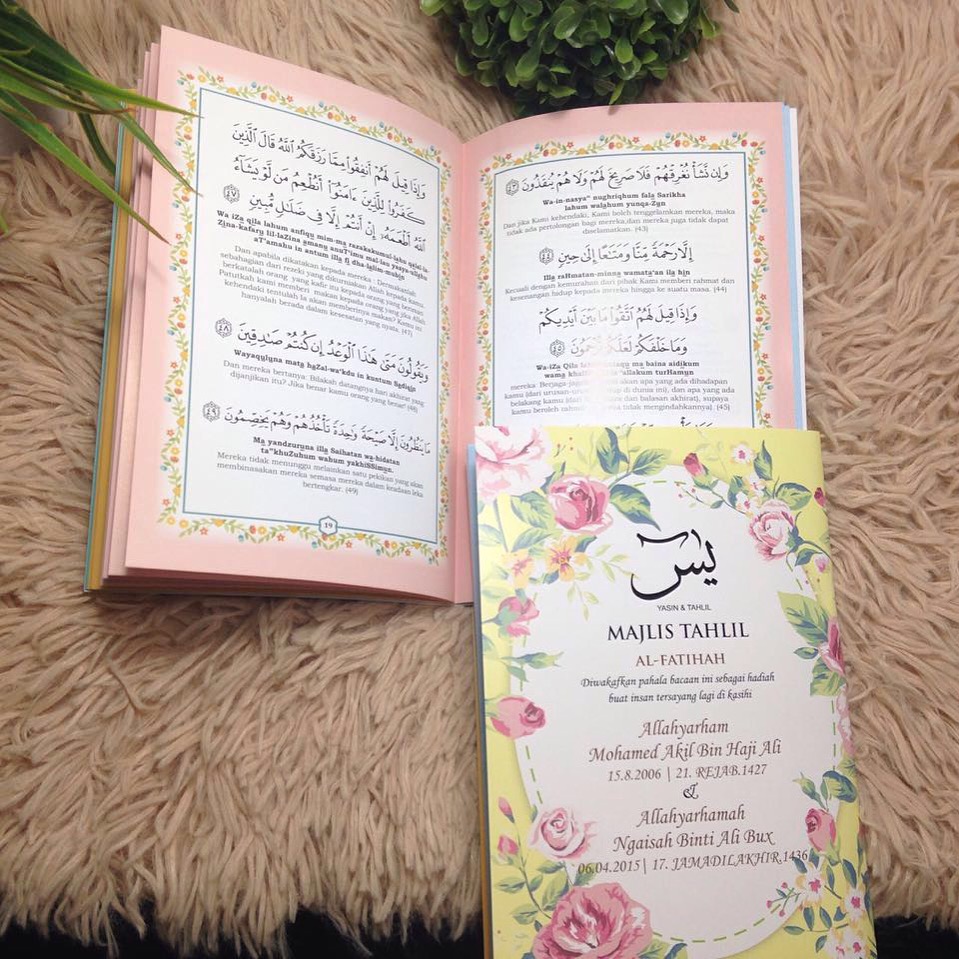 وَإِذَا قِيلَ لَهُمْ أَنفِقُوا۟ مِمَّا رَزَقَكُمُ ٱللَّهُ قَالَ ٱلَّذِينَ
كَفَرُوا۟ لِلَّذِينَ ءَامَنُوٓا۟ أَنُطْعِمُ مَن لَّوْ يَشَآءُ
ٱللَّهُ أَطْعَمَهُۥٓ إِنْ أَنتُمْ إِلَّا فِى ضَلَٰلٍ مُّبِينٍ ٤٧
Wa iZa qila lahum anfiqu mim-ma razakakumul-lahu qalal-la
Zina-kafaru lil-laZina amanu anuT'imu mal-lau yasya-ullahu
aT'amahu in antum illa fi dha-lalim-mubin
Dan apabila dikatakan kepada mereka : Dermakanlah
sebahagian dari rezeki yang dikurniakan Allah kepada kamu,
berkatalah orang yang kafir itu kepada orang yang beriman
Patutkah kami memberi makan kepada orang yang jika Allah
kehendaki tentulah Ia akan memberinya makan? Kamu ini
hanyalah berada dalam kesesatan yang nyata. (47)
وَيَقُولُونَ مَتَىٰ هَٰذَا ٱلْوَعْدُ إِن كُنتُمْ صَٰدِقِينَ ٤٨
Wayaquluna mata haZal-wa'kdu in kuntum Sadiqin
Dan mereka bertanya: Bilakah datangnya hari akhirat yang
dijanjikan itu? Jika benar kamu orang yang benar! (48)
مَا يَنظُرُونَ إِلَّا صَيْحَةً وَٰحِدَةً تَأْخُذُهُمْ وَهُمْ يَخِصِّمُونَ ٤٩
Ma yandzuruna illa Saihatan wa-hidatan
ta"khuZuhum wahum yakhiSSimun.
Mereka tidak menunggu melainkan satu pekikan yang akan
membinasakan mereka semasa mereka dalam keadaan leka
bertengkar. (49)
19
وَإِن نَّشَأْ نُغْرِقْهُمْ فَلَا صَرِيخَ لَهُمْ وَلَا هُمْ يُنقَذُونَ ٤٣
Wa-in-nasya" nughriqhum fala Sarikha
lahum walahum yunqa-Zqn
Dan jika Kami kehendaki, Kami boleh tenggelamkan mereka, maka
tidak ada pertolongan bagi mereka,dan mereka juga tidak dapat
diselamatkan. (43)
إِلَّا رَحْمَةً مِّنَّا وَمَتَٰعًا إِلَىٰ حِينٍ ٤٤
Illa raHmatan-minna wamata'an ila hin
Kecuali dengan kemurahan dari pihak Kami memberi rahmat dan
kesenangan hidup kepada mereka hingga ke suatu masa. (44)
وَإِذَا قِيلَ لَهُمُ ٱتَّقُوا۟ مَا بَيْنَ أَيْدِيكُمْ
وَمَا خَلْفَكُمْ لَعَلَّكُمْ تُرْحَمُونَ ٤٥
Wa-iZa Qila baina aidikum
wama la'allakum turHamun
mereka: Berjaga-jaga akan apa yang ada dihadapan
kamu (dari urusan-urusan di dunia ini), dan apa yang ada
belakang kamu dan balasan akhirat), supaya
kamu beroleh rahmat tidak mengindahkannya). (45)
يس
YASIN & TAHLIL
MAJLIS TAHLIL
AL-FATIHAH
Diwakafkan pahala bacaan ini sebagai hadiah
buat insan tersayang lagi di kasihi
Allahyarham
Mohamed Akil Bin Haji Ali
15.8.2006 | 21. REJAB.1427
&
Allahyarhamah
Ngaisah Binti Ali Bux
06.04.2015| 17. JAMADILAKHIR.1436